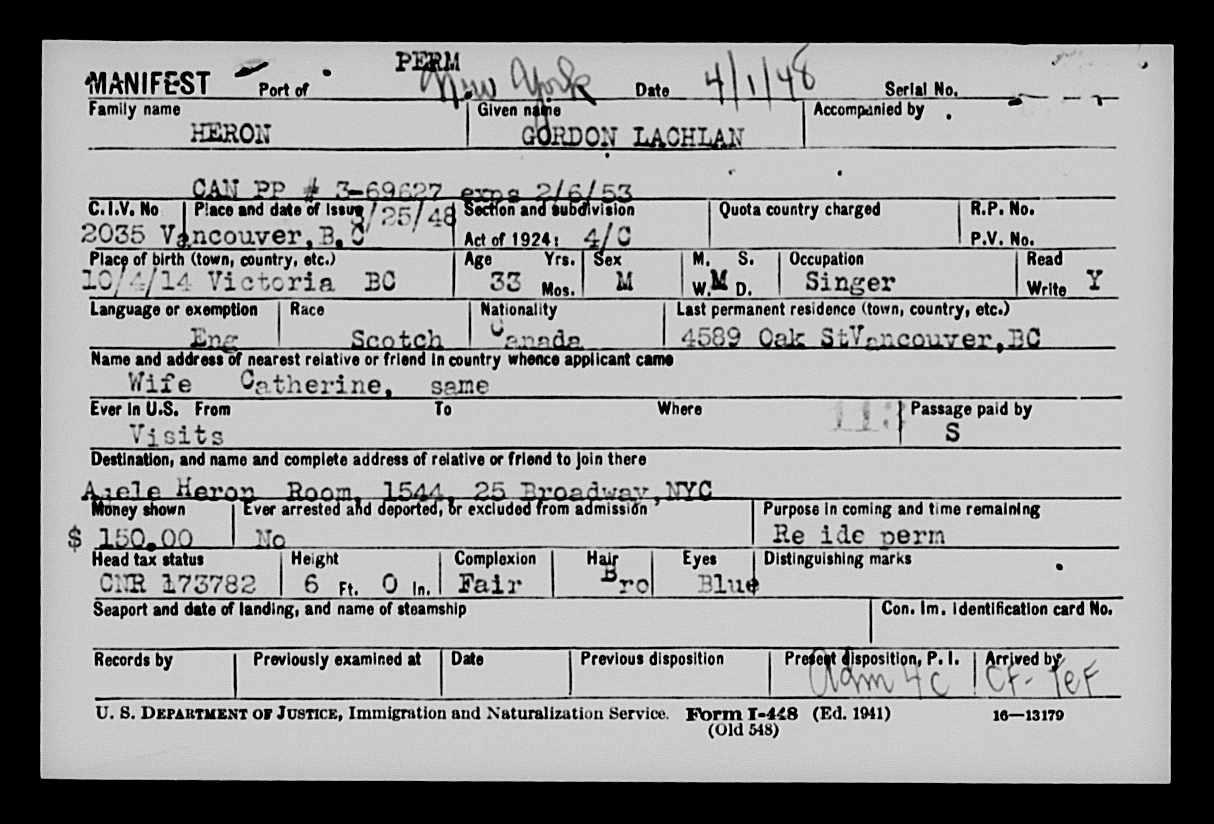 PERM
MANIFEST Port of New York Date 4/1/48 Serial No.
Family name Given name Accompanied by
HERON GORDON LACHLAN
CAN PP # 3-69627 exps 2/6/53
C.I.V. No Place and date of Issue /25/48 Section and subdivision Quota country charged R.P. No.
2035 Vancouver, B. C Act of 1924: 4/C P.V. No.
Place of birth (town, country, etc.) Age Yrs. Sex M. S. Occupation Read
10/4/14 Victoria BC 33 Mos. M W. M D. Singer Write Y
Language or exemption Race Nationality Last permanent residence (town, country, etc.)
Eng Scotch Canada 4589 Oak StVancouver,BC
Name and address of nearest relative or friend in country whence applicant came
Wife Catherine, same
Ever in U.S. From To Where Passage paid by
Visits S
Destination, and name and complete address of relative or friend to join there
Heron Room, 1544, 25 Broadway,NYC
Money shown Ever arrested and deported, or excluded from admission Purpose in coming and time remaining
$ 150.00 No Re ide perm
Head tax status Height Complexion Hair Eyes Distinguishing marks
CNR 173782 6 Ft. 0 In. Fair Bro Blue
Seaport and date of landing, and name of steamship Con. Im. Identification card No.
Records by Previously examined at Date Previous disposition Present disposition, P. I. Arrived by
Adm 4c
U. S. DEPARTMENT OF JUSTICE, Immigration and Naturalization Service. Form I-448 (Ed. 1941) 16—13179
(Old 548)